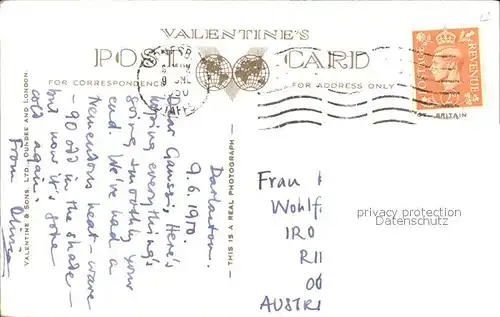 VALENTINE'S
POST CARD
FOR CORRESPONDENCE
FOR ADDRESS ONLY
POSTAGE
REVENUE
VALENTINE & SONS, LTD., DUNDEE AND LONDON.
THIS IS A REAL PHOTOGRAPH
Darlaston.
9.6.1950
Dear Gaussi, Here's
hoping everything's
going smoothly your
end. We've had a
tremendous heat-wave
- 90 odd in the shade -
but now it's gone
cold again.
From Olivia
Frau
Wohlf
IRO
RI
AUSTRI
privacy protection
Datenschutz